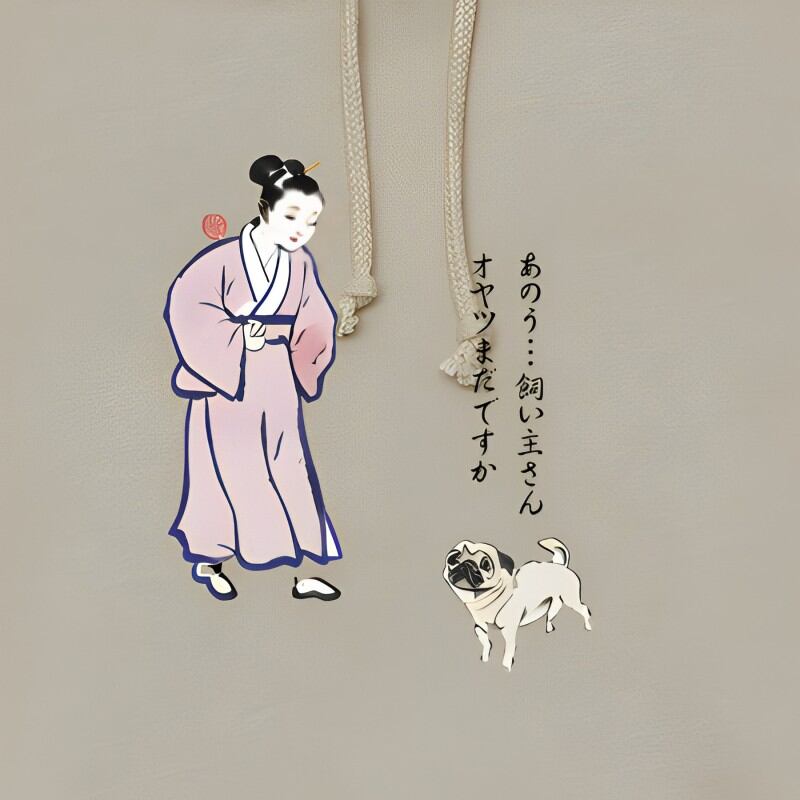 あのう…飼い主さん
オヤツまだですか